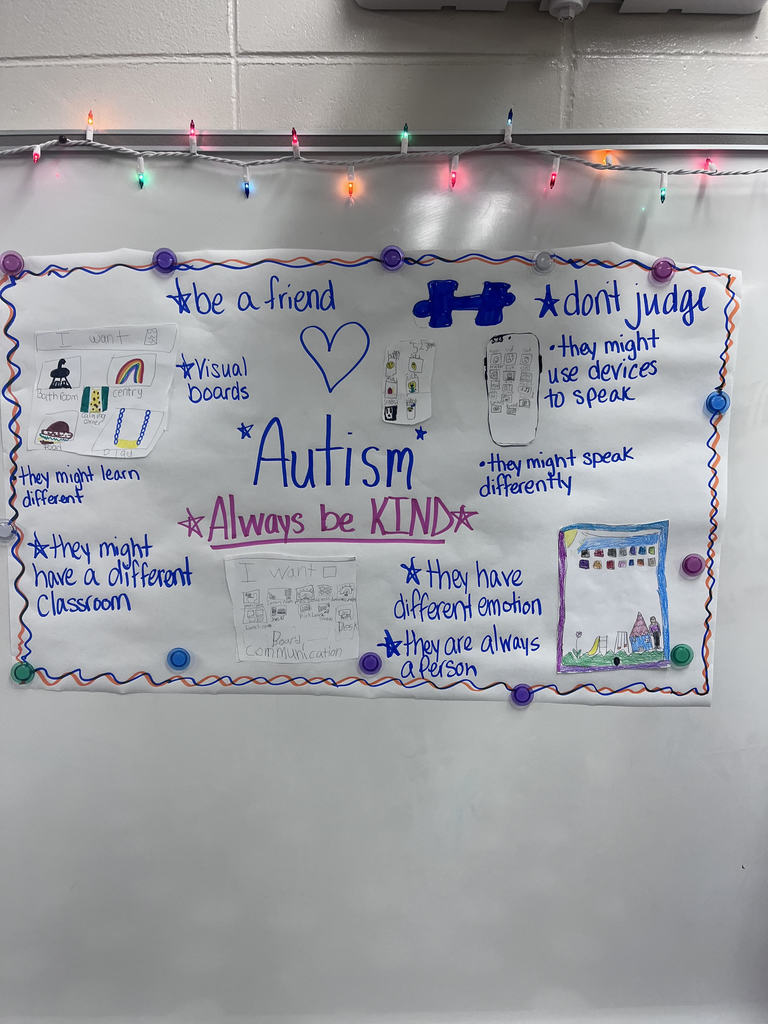 be a friend
don't judge
I want
Bathroom
centry
calming
corner
food
Play
Visual
boards
they might
use devices
to speak
they might learn
different
Autism
Always be KIND
they might speak
differently
they might
have a different
classroom
I want
Board
Communication
they have
different emotion
they are always
a person